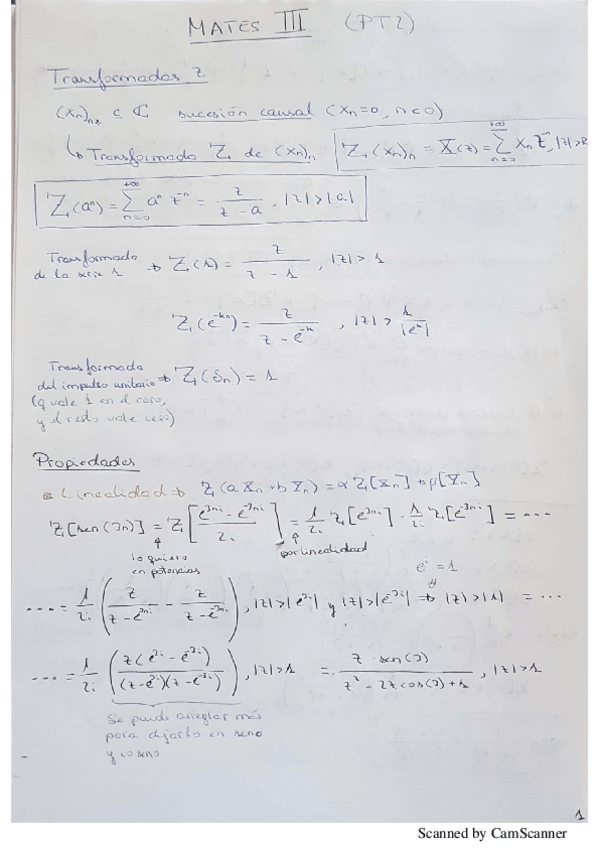 MATES III (PT2)
Transformadas Z
(Xn)n≥ ⊂ ℂ sucesión causal (Xn=0, n<0)
↳ Transformada Z de (Xn)n Z(Xn)n = X(z) = Σ_{n=0}^{+∞} Xn z^-n, |z|>R
Z(a^n) = Σ_{n=0}^{+∞} a^n z^-n = z/(z-a), |z|>|a|
Transformada
de la serie 1 → Z(1) = z/(z-1), |z|>1
Z(e^-kn) = z/(z-e^-k), |z|> 1/|e^k|
Transformada
del impulso unitario → Z(δn) = 1
(q vale 1 en el cero,
y el resto vale cero)
Propiedades
Linealidad → Z(a Xn + b Yn) = α Z[Xn] + β[Yn]
Z[sen(3n)] = Z[(e^3ni - e^-3ni)/2i] = 1/2i Z[e^3ni] - 1/2i Z[e^-3ni] = ---
lo quiero
en potencias
por linealidad
e^i = 1
--- = 1/2i (z/(z-e^3ni) - z/(z-e^-3ni)), |z|>|e^3i| y |z|>|e^-3i| ⇒ |z|>|1| = ---
--- = 1/2i (z(e^3i - e^-3i)/((z-e^3i)(z-e^-3i))), |z|>1 = z·sen(3)/(z² - 2z cos(3)+1), |z|>1
Se puede arreglar más
para dejarlo en seno
y coseno
1
Scanned by CamScanner